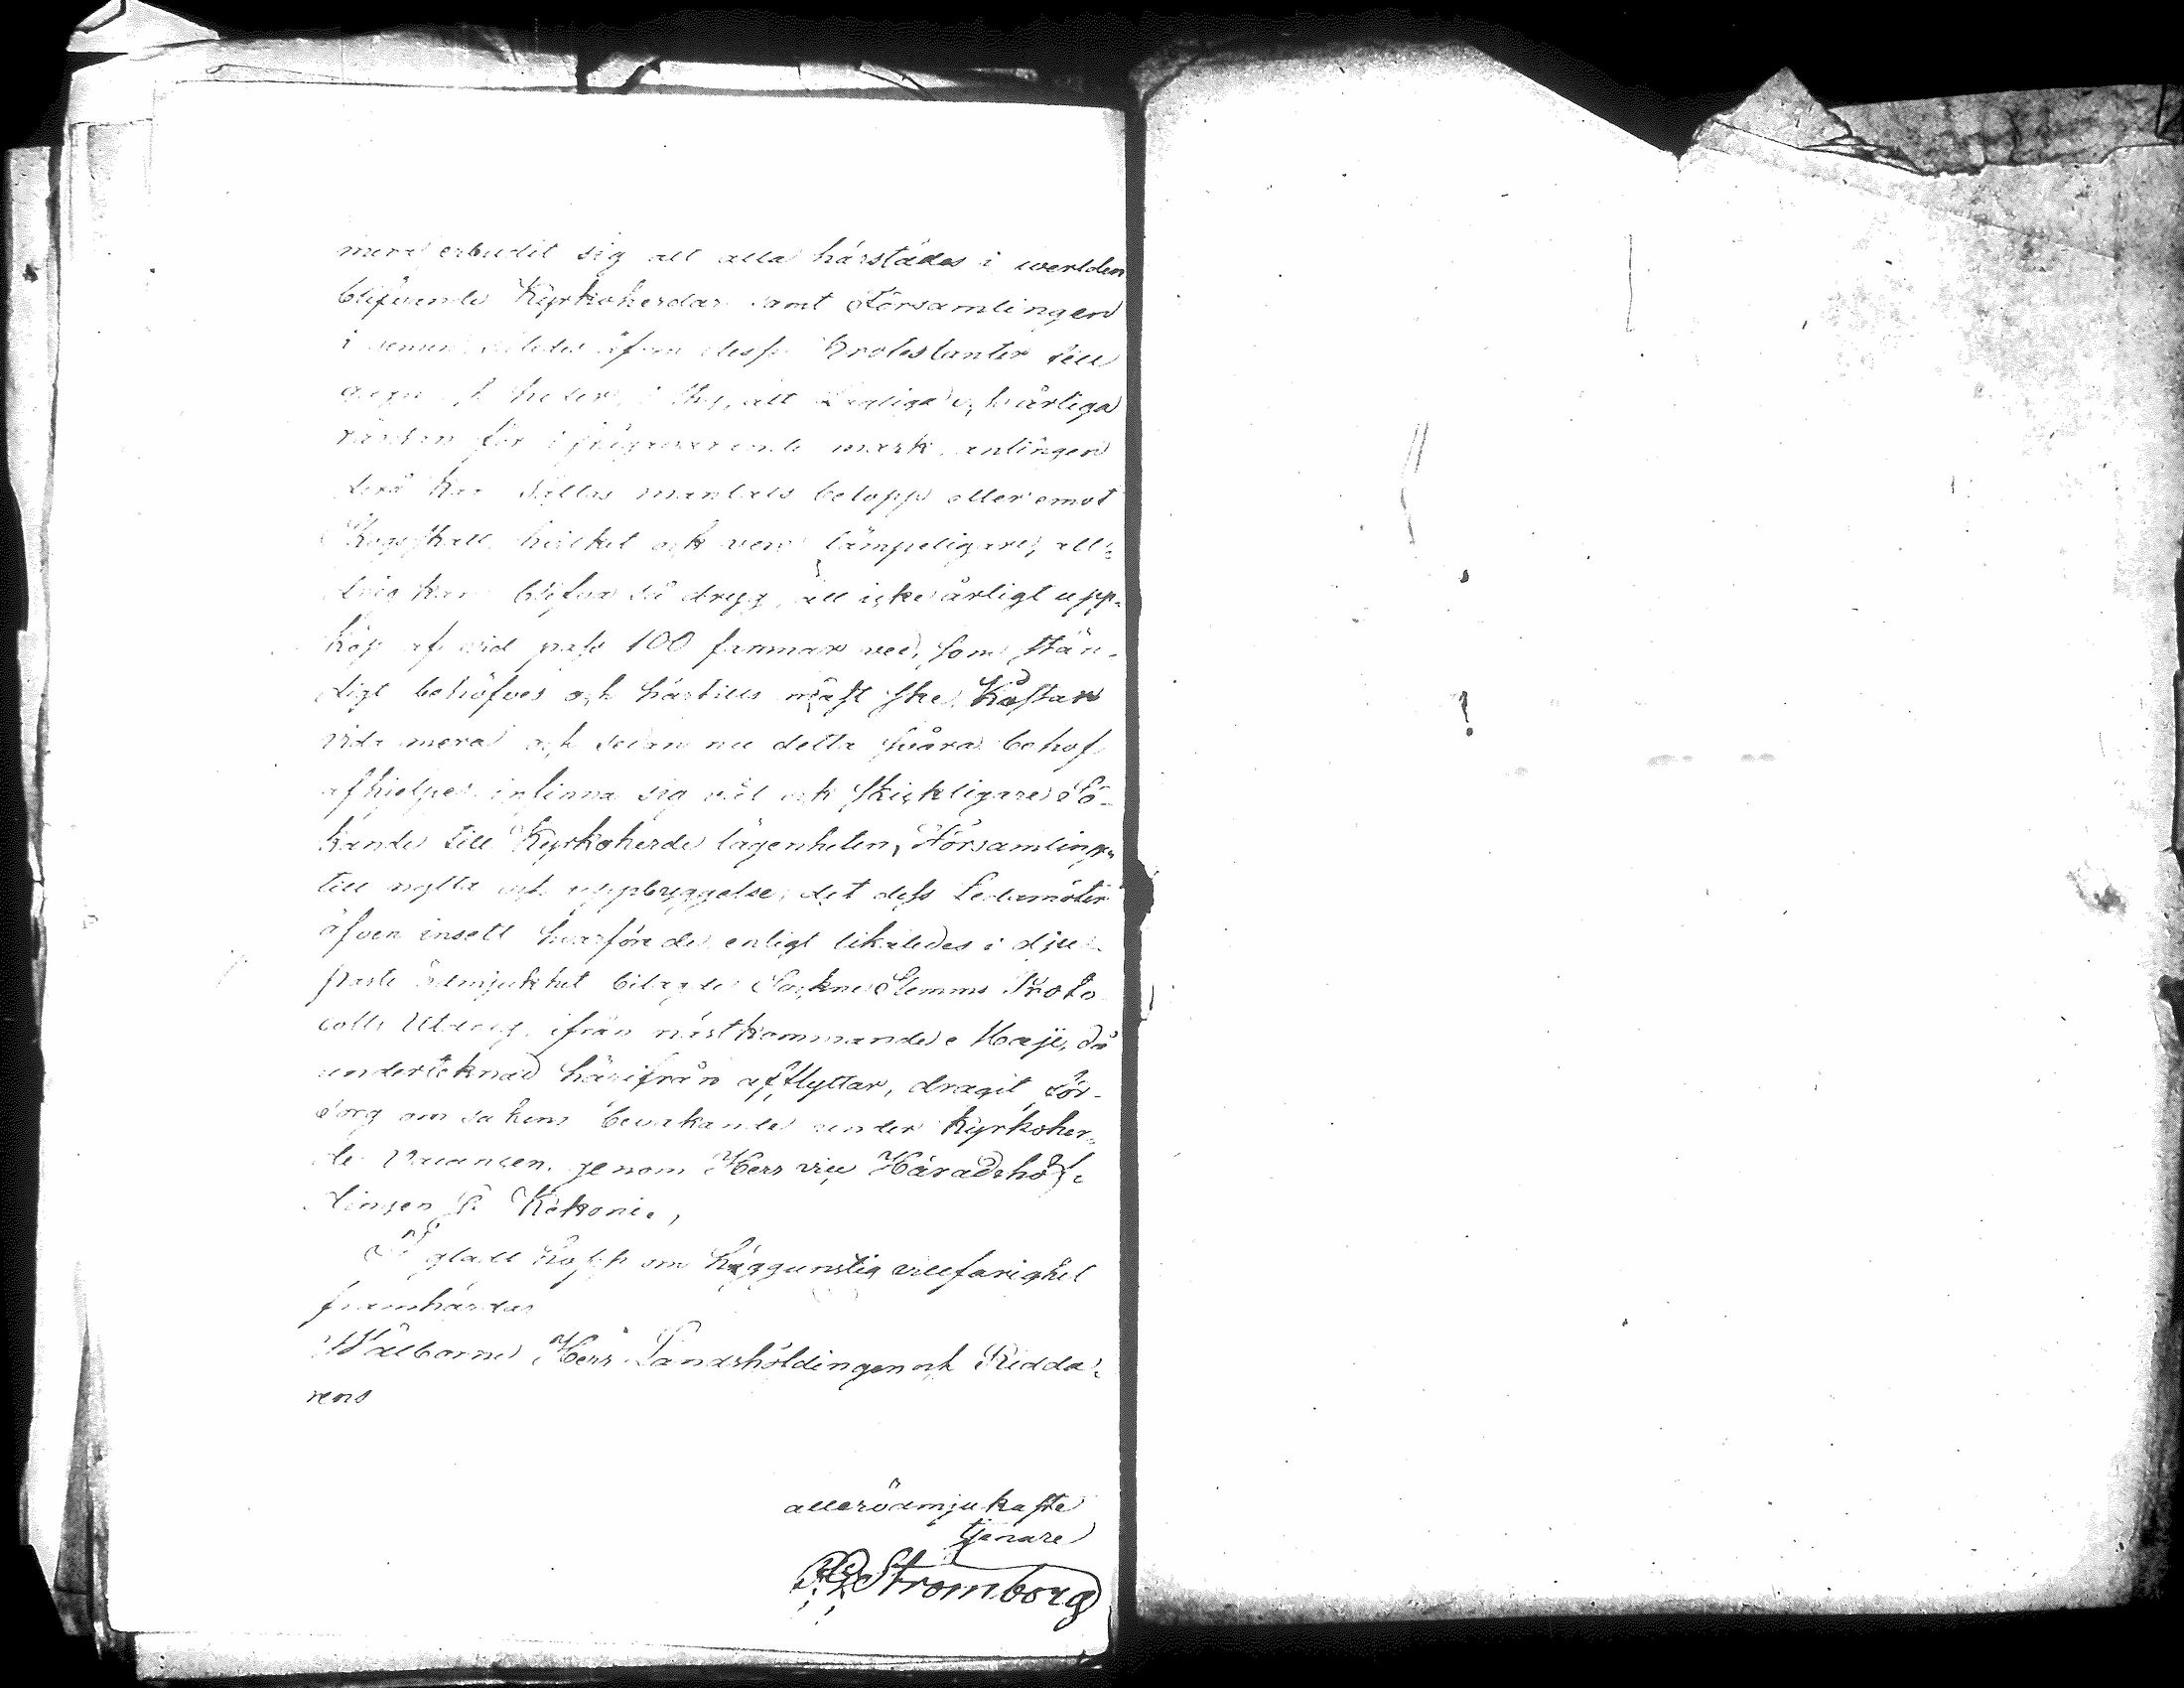 mera erbudit sig att alla härstädes i werlden
blifvande Kyrkoherdar samt Församlingen
i äfven dess Protestanter till
heder, att årliga
för mark antingen
mantals belopp eller emot
hvilket och vore lämpeligare, all-
drig kan blifva så dryg, att icke årligt upp-
köp af vid pass 100 famnar ved, som stän-
digt behöfves och härtills måst ske, kostar
vida mera och sedan nu detta svåra behof
afhjelpes infinna sig väl ock skickligare Sö-
kande till Kyrkoherde lägenheten, Församlingen
till nytta och uppbyggelse, det dess Ledamöter
äfven insett hvarföre de enligt likaledes i dju-
paste ödmjukhet bilagde SockneStemms Proto
colls Utdrag, ifrån nästkommande Maji, då
undertecknad härifrån afflyttar, dragit för-
sorg om sakens bevakande under Kyrkoher-
de Vacancen, genom Herr vice Häradshöf-
dingen
I gladt hopp om höggunstig villfarighet
framhärdar
Wälborne Herr Landshöfdingen och Ridda-
rens
allerödmjukaste
tjenare
Stromborg